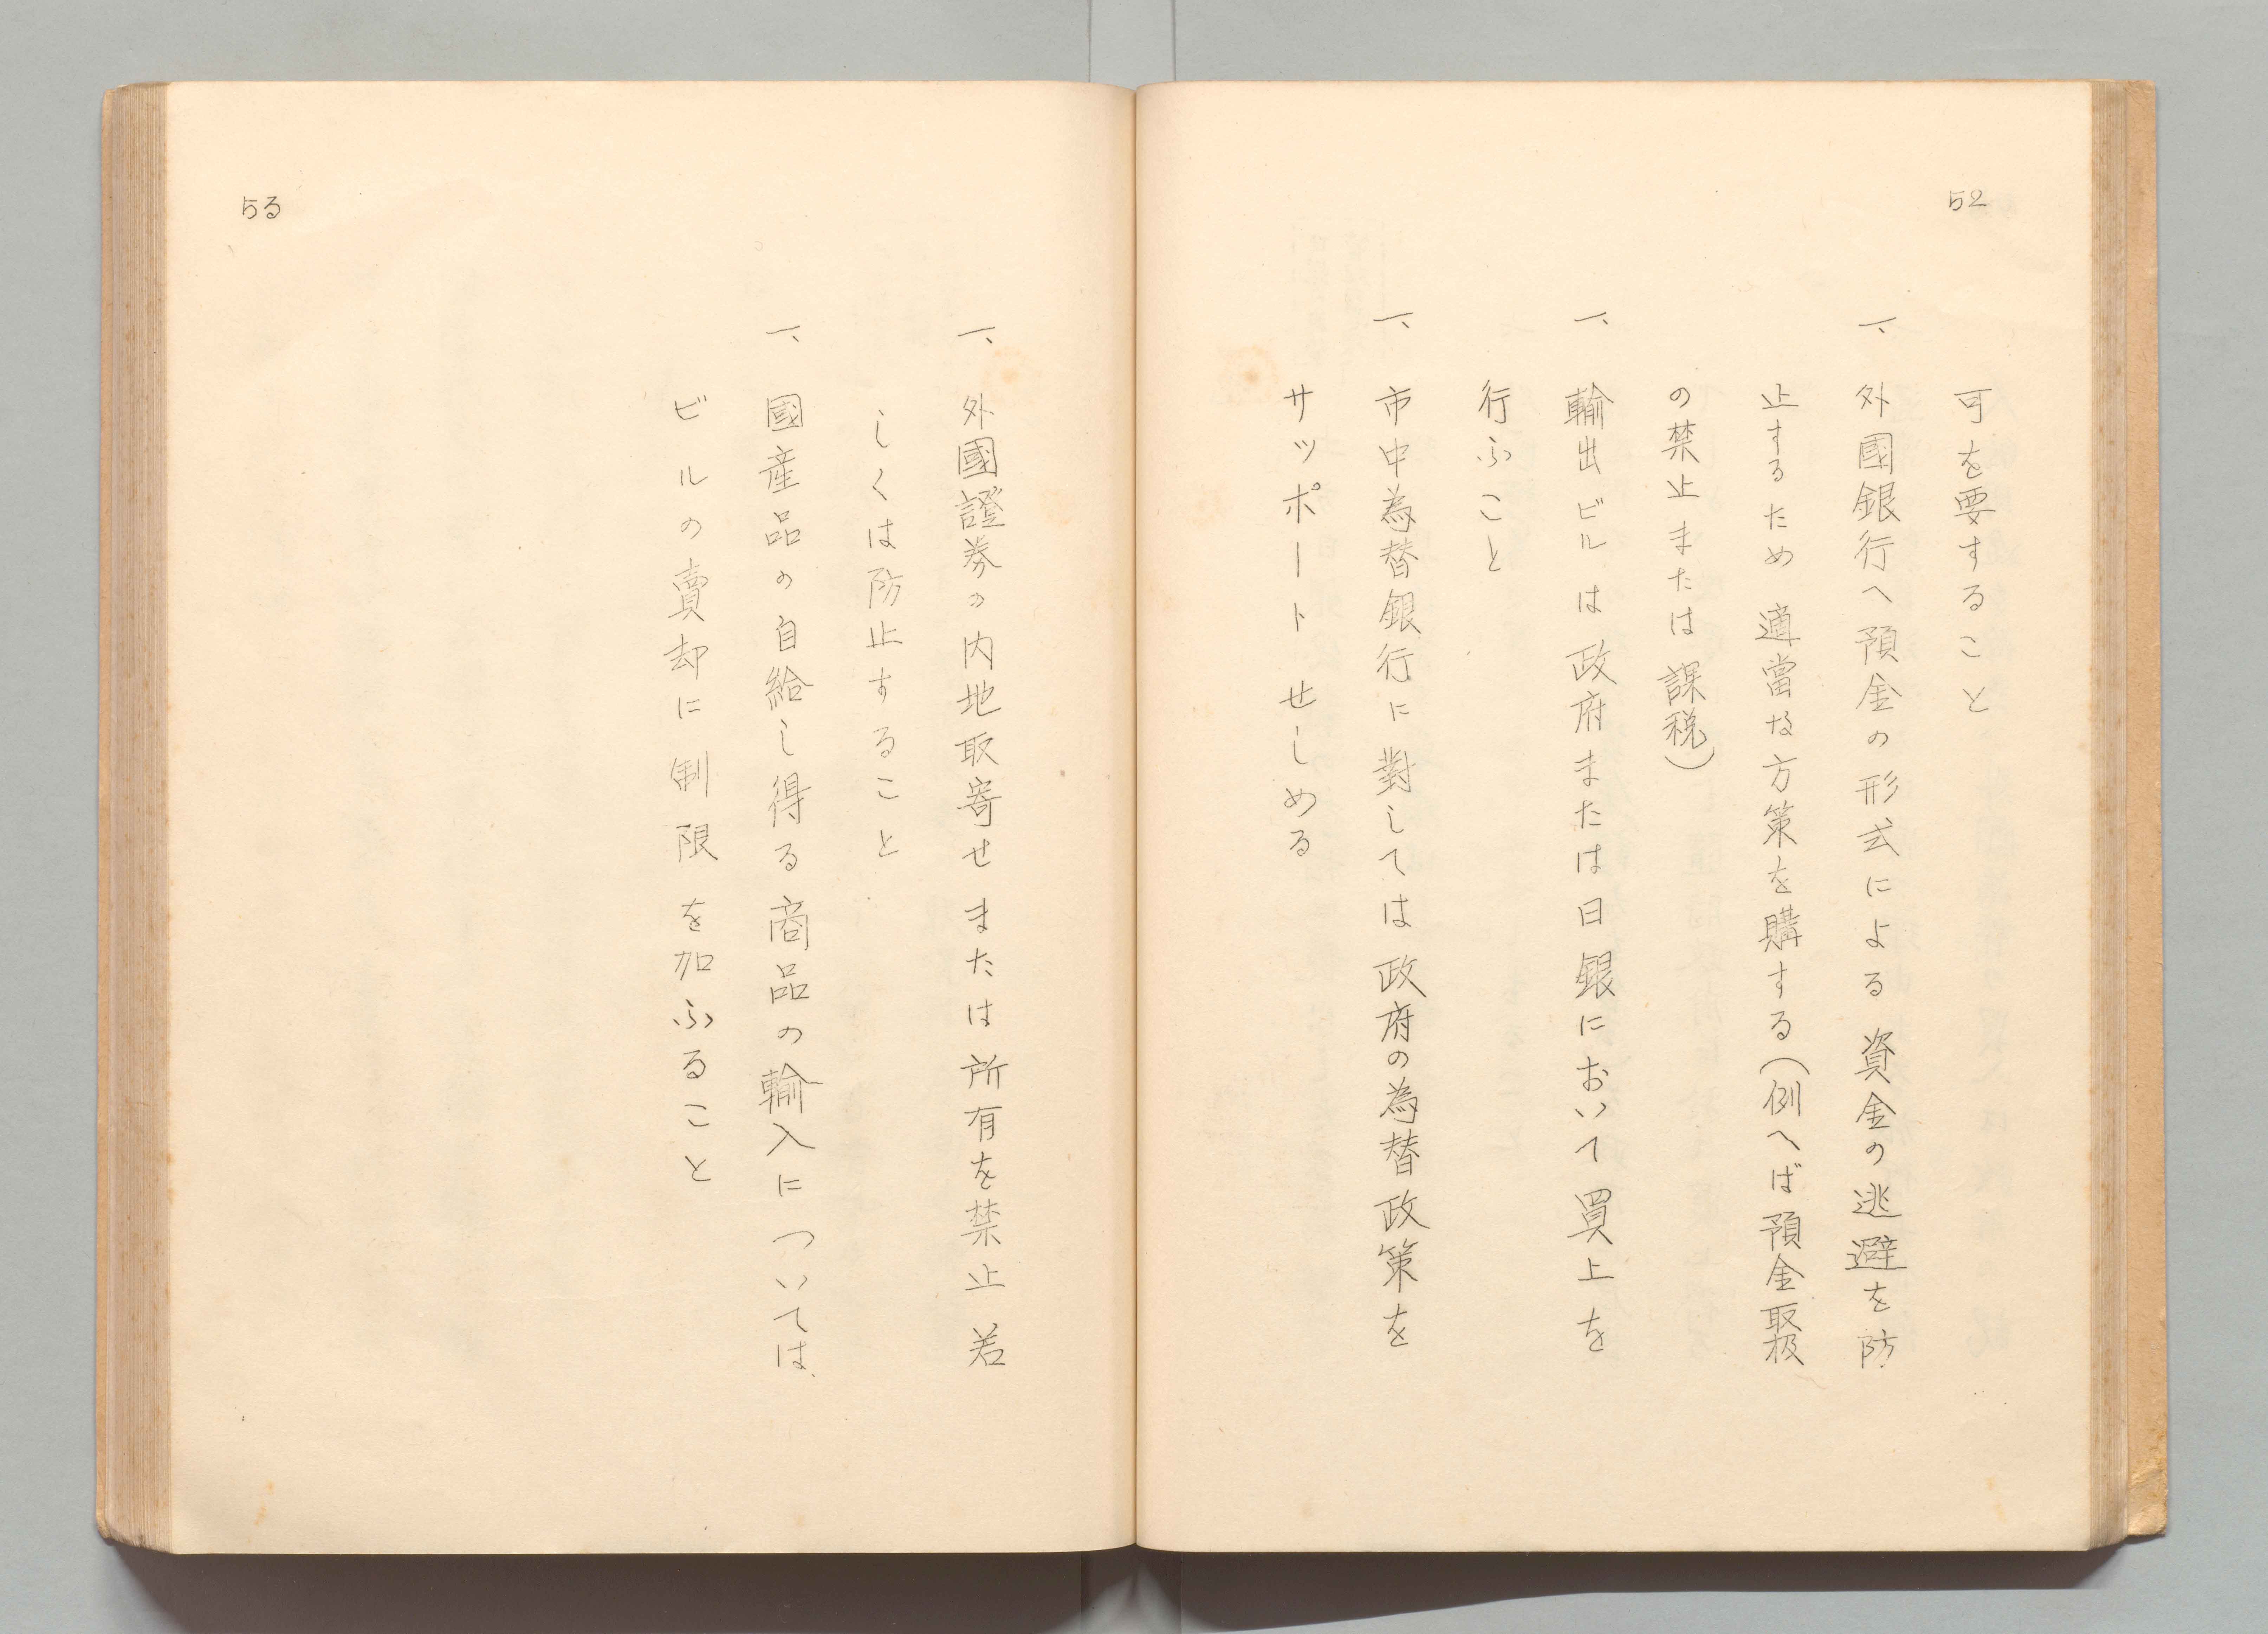 52
可を要すること
一、外國銀行へ預金の形式による資金の逃避を防
止するため適當な方策を購する(例へば預金取扱
の禁止または課税)
一、輸出ビルは政府または日銀において買上を
行ふこと
一、市中為替銀行に對しては政府の為替政策を
サッポートせしめる
53
一、外國證券の内地取寄せまたは所有を禁止若
しくは防止すること
一、國産品の自給し得る商品の輸入については
ビルの賣却に制限を加ふること